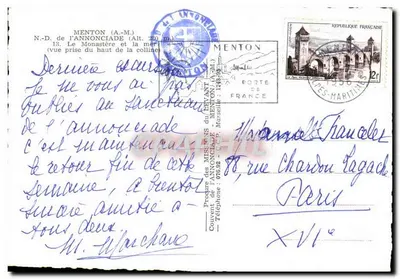 MENTON (A.-M.)
N.-D. de l'ANNONCIADE (Alt.
13. Le Monastère et la mer
(vue prise du haut de la colline)
Dernière excursion
Je ne vous ai pas
oubliés au sanctuaire
de l'annonciade
c'est maintenant
le retour fin de cette
semaine, à bientôt
sincère amitié à
tous deux.
M. Marchand
Procure des MISSIONS du LEVANT
Couvent de l'ANNONCIADE - MENTON
Téléphone :
MENTON
PORTE
DE
FRANCE
REPUBLIQUE FRANÇAISE
12f
ALPES-MARITIMES
88 rue Chardon Lagache
Paris
XVIe